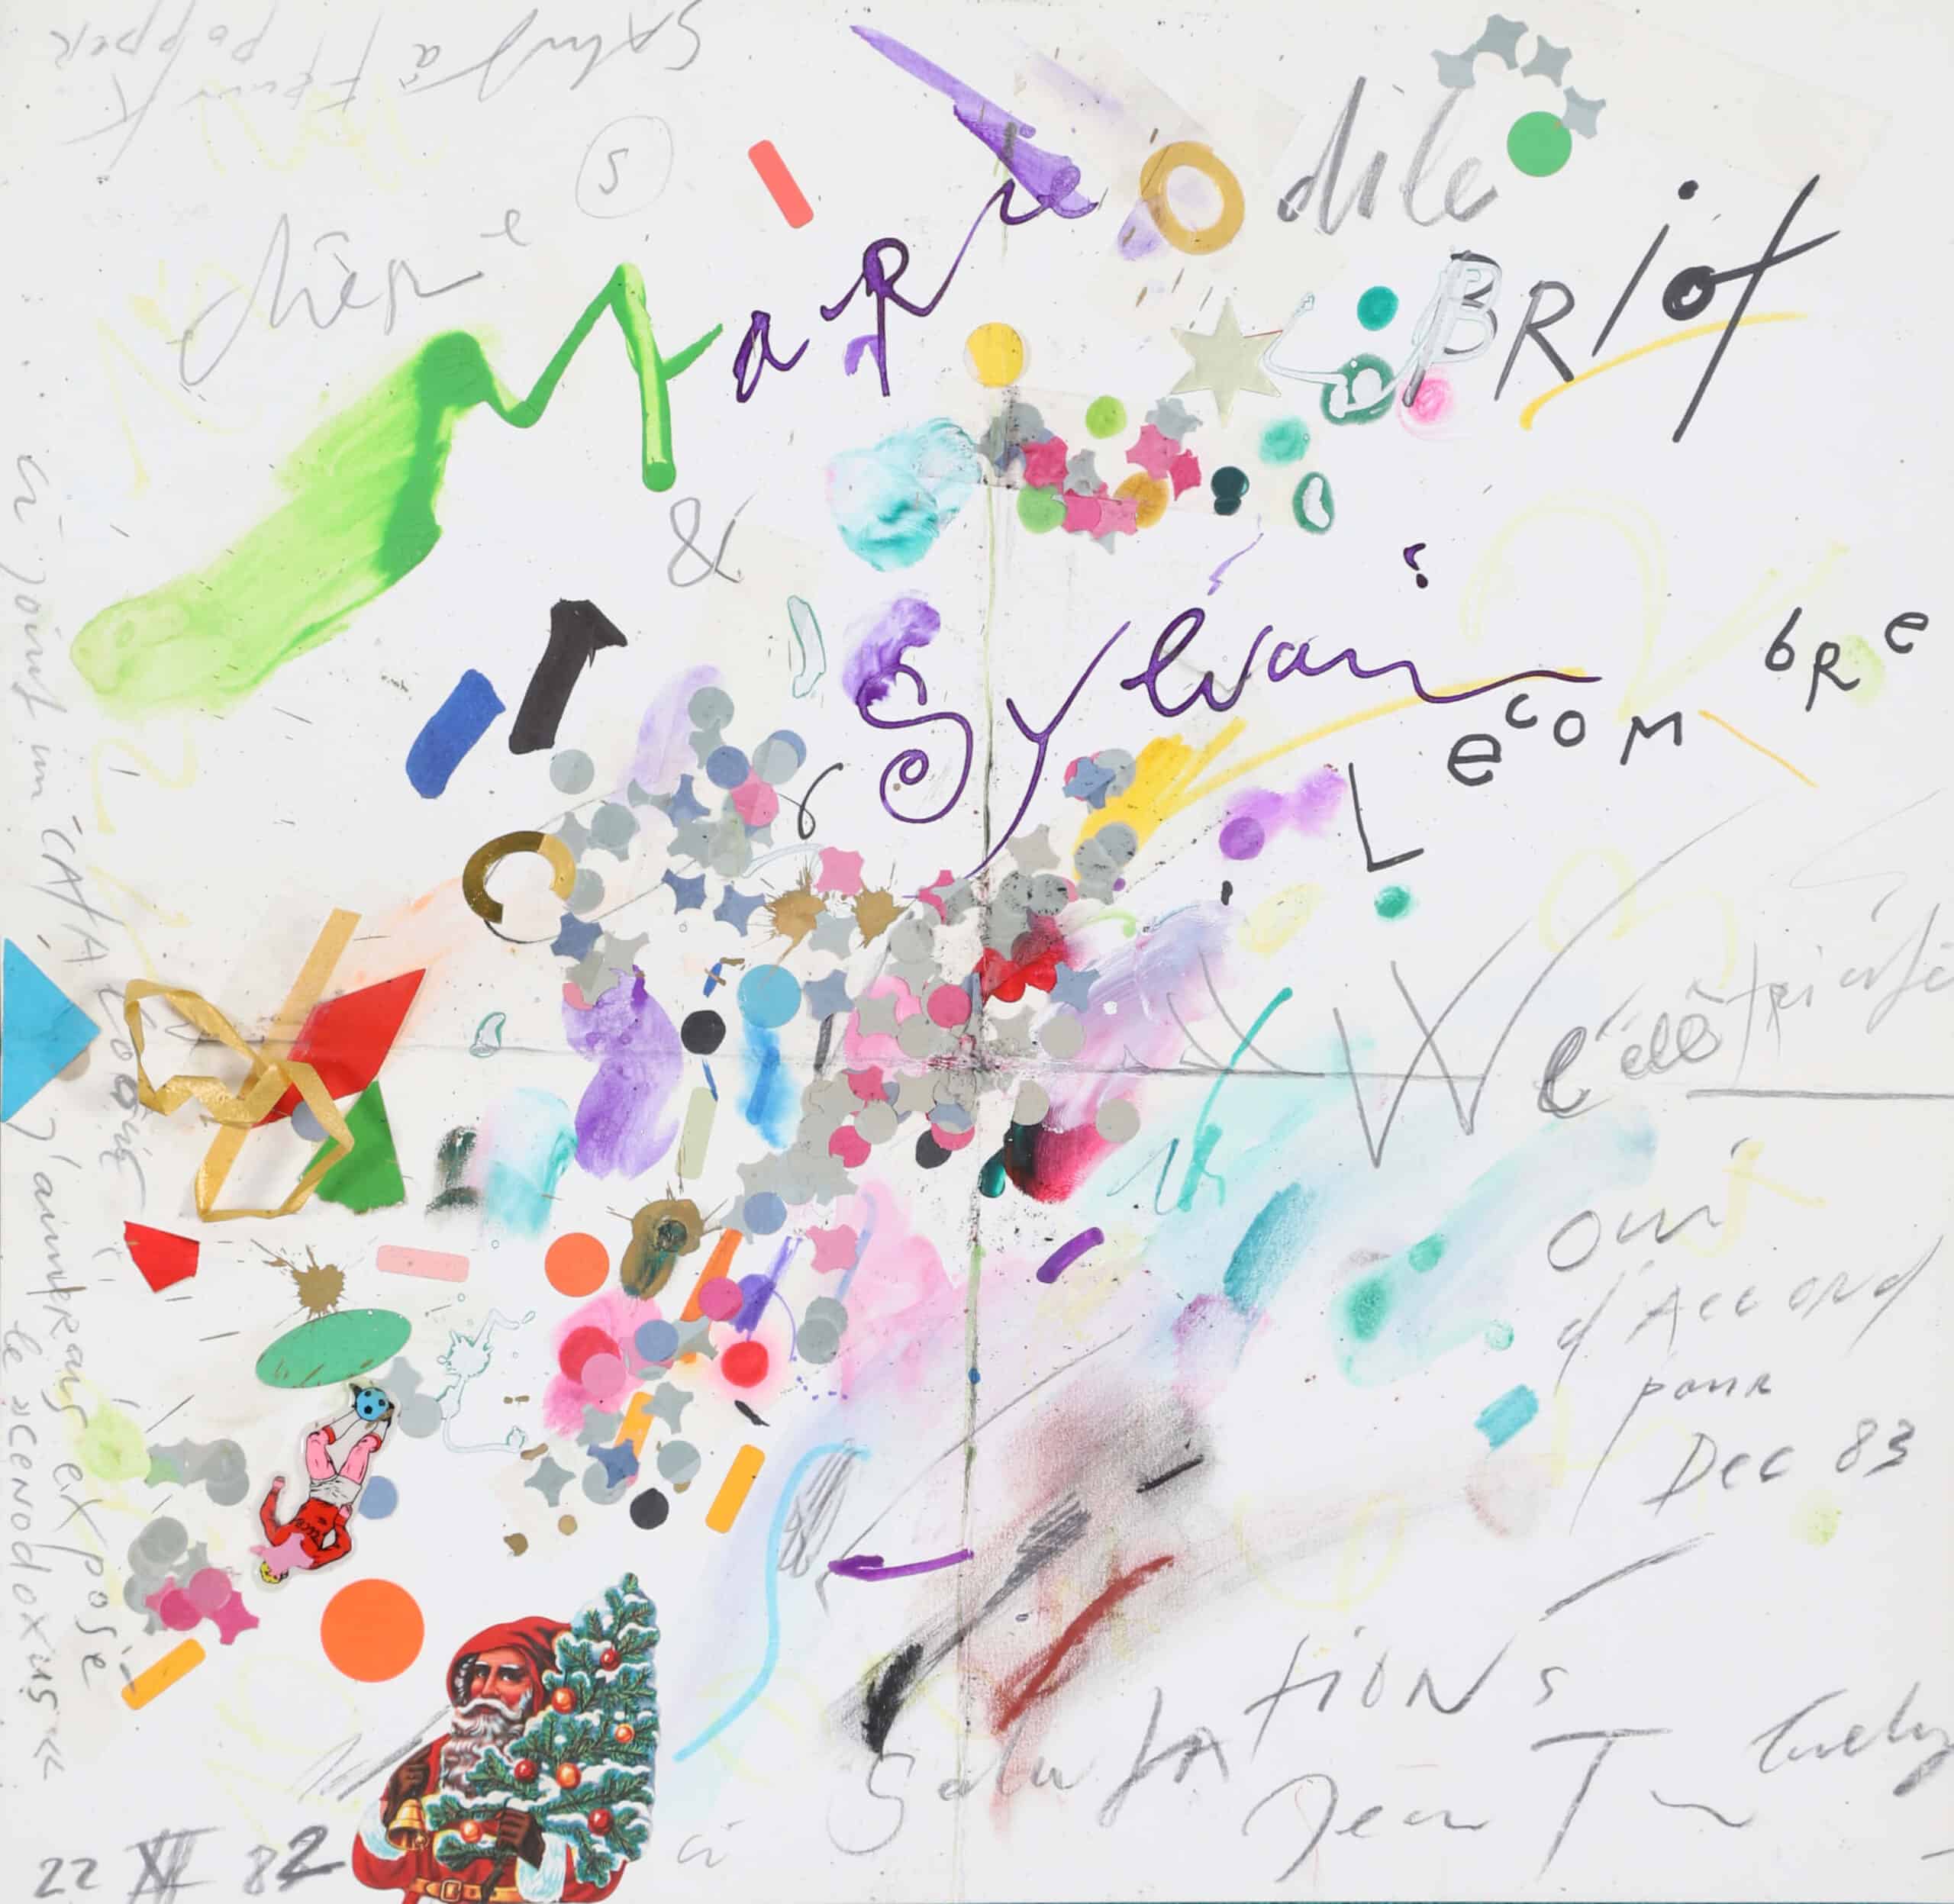 Salut à Frank
popper
chère s
MaRie Odile
BRiot
&
Sylvain
LecOMbRe
W l'électricité
Oui
d'Accord
pour
Dec 83
SalutAtiONs
Jean T
22 XI 82
ci-joint un CATAlogue
j'aimerais exposé
le »cenodoxus«